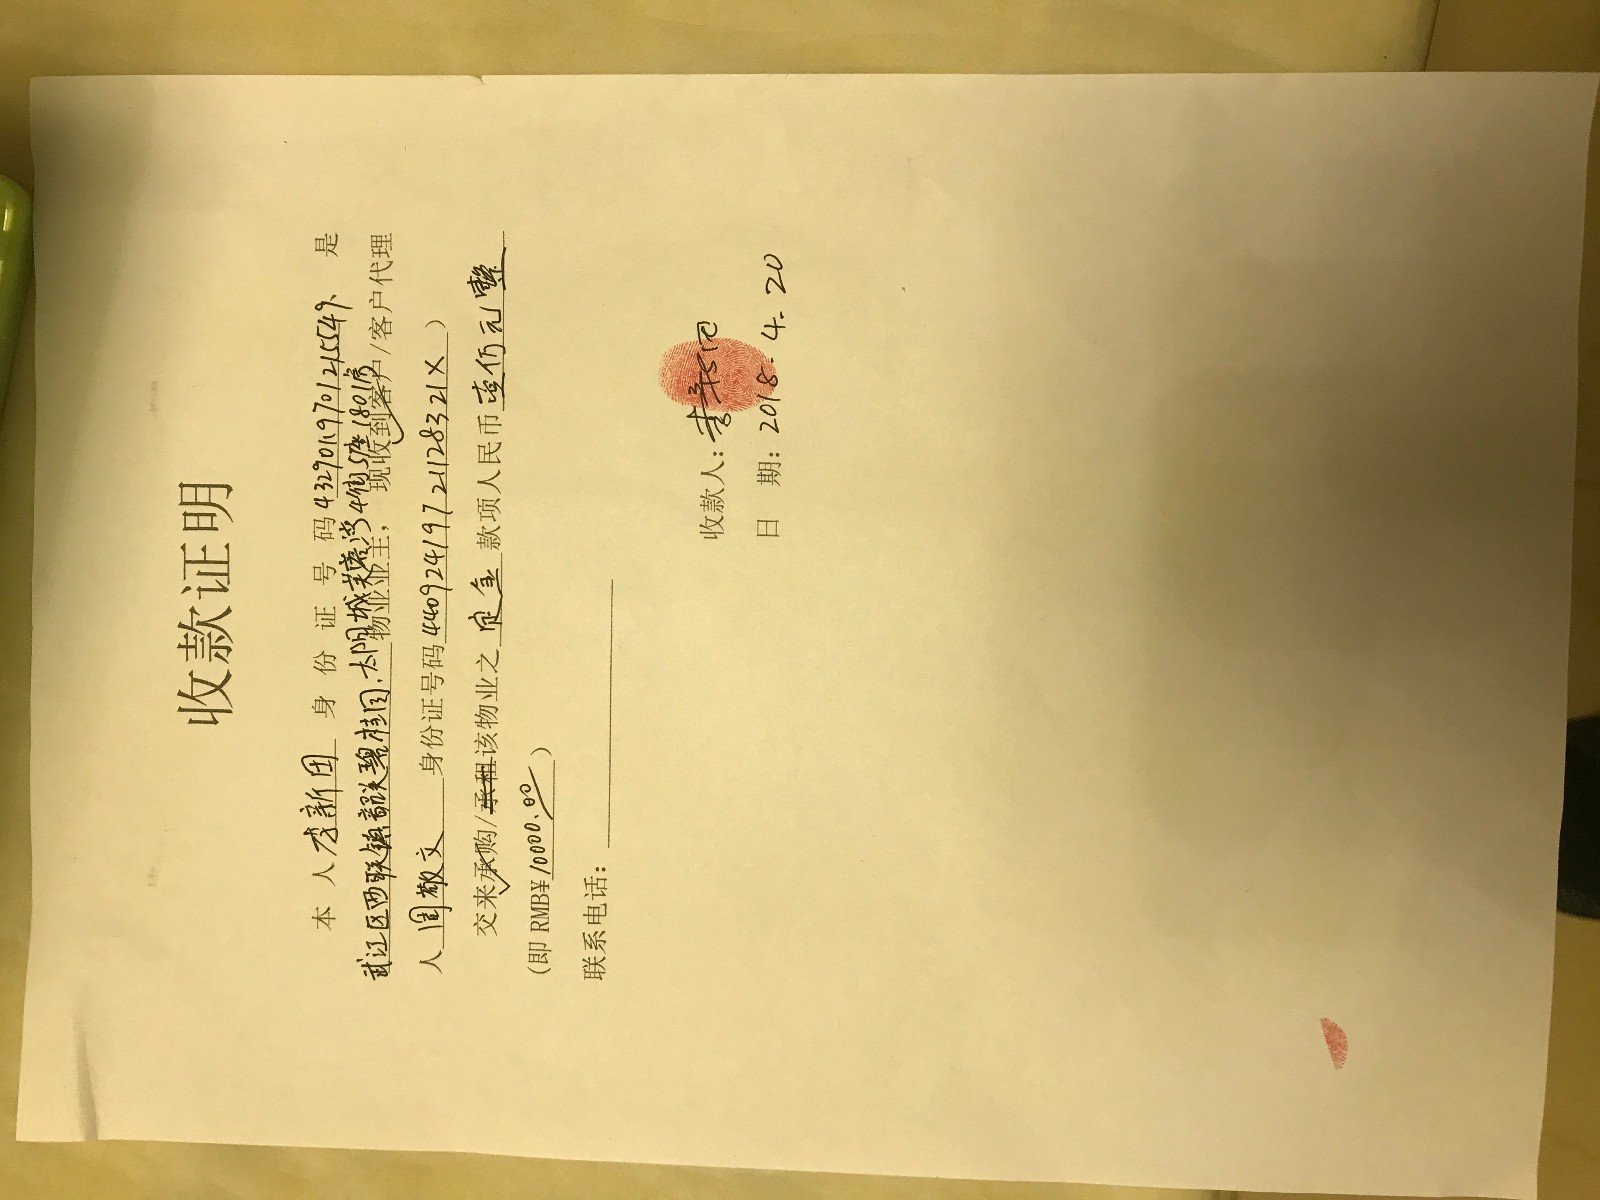 收款证明
本人李新团 身份证号码43290119701215549、是
武江区西联镇韶关碧桂园.太阳城芙蓉湾4街5座1801房物业业主,现收到客户/客户代理
人周敬文 身份证号码44092419721128321X)
交来承购/承租该物业之定金款项人民币壹仟元整
(即RMB¥10000.00)
联系电话:
收款人:李新团
日 期:2018.4.20